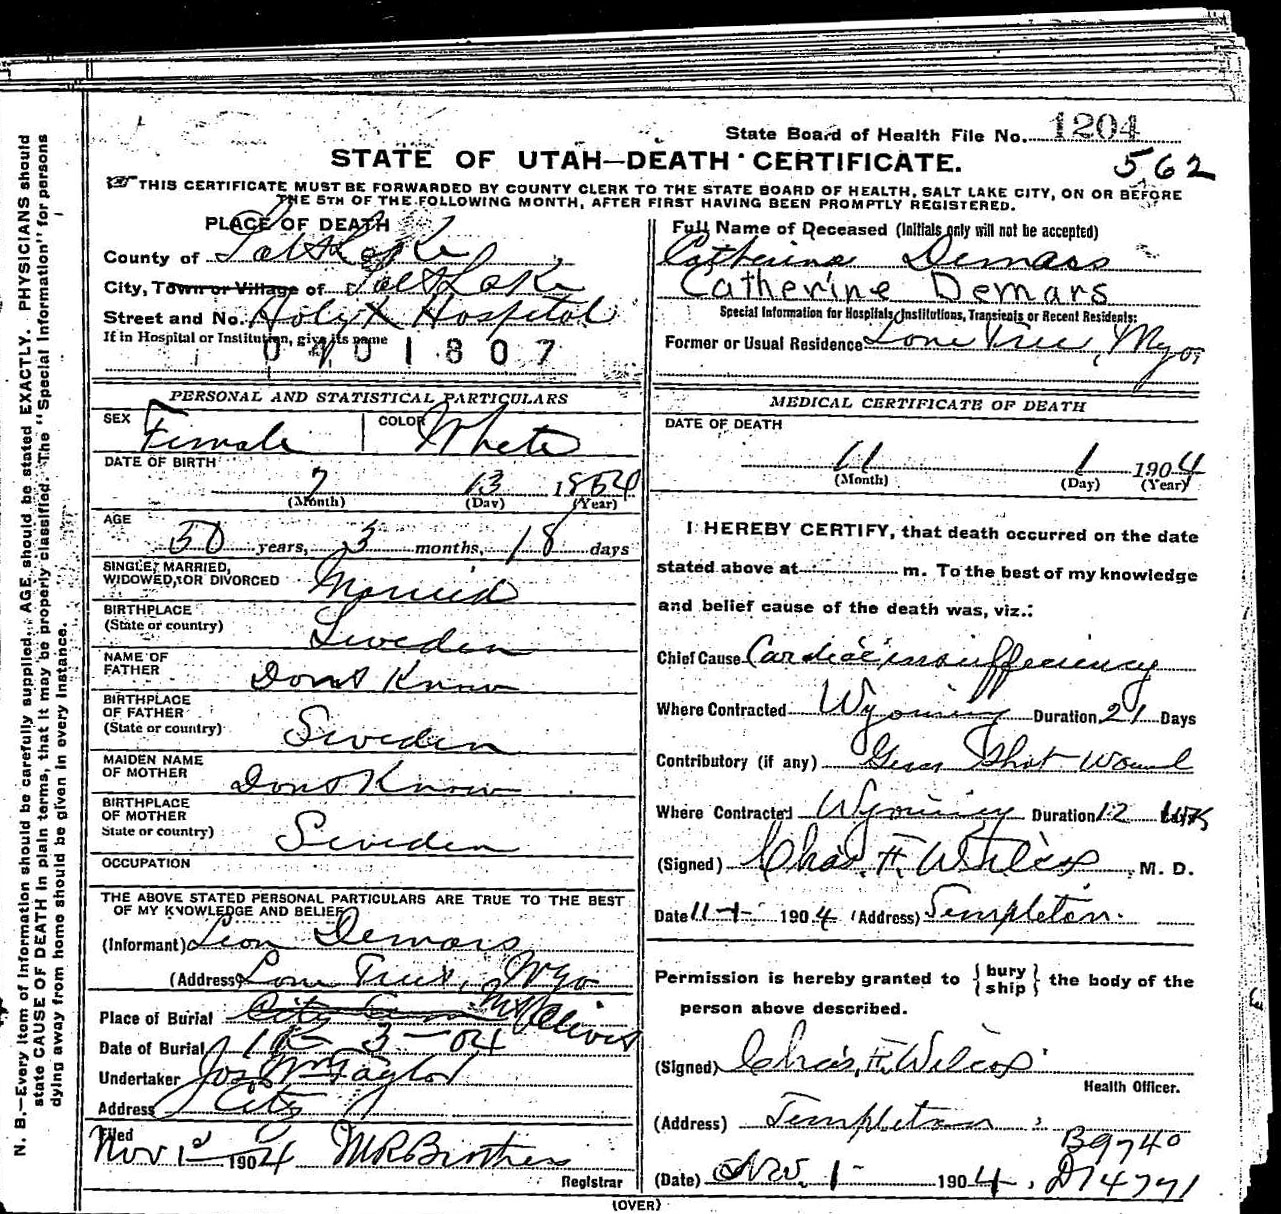 State Board of Health File No. 1204
STATE OF UTAH—DEATH CERTIFICATE.
562
THIS CERTIFICATE MUST BE FORWARDED BY COUNTY CLERK TO THE STATE BOARD OF HEALTH, SALT LAKE CITY, ON OR BEFORE
THE 5TH OF THE FOLLOWING MONTH, AFTER FIRST HAVING BEEN PROMPTLY REGISTERED.
PLACE OF DEATH
County of Salt Lake
City, Town or Village of Salt Lake
Street and No. Holy X Hospital
If in Hospital or Institution, give its name
0401807
Full Name of Deceased (Initials only will not be accepted)
Catherine Demars
Catherine Demars
Special Information for Hospitals, Institutions, Transients or Recent Residents:
Former or Usual Residence Lone Tree, Wyo,
PERSONAL AND STATISTICAL PARTICULARS
SEX Female COLOR White
DATE OF BIRTH
7 13 1854
(Month) (Day) (Year)
AGE
50 years, 3 months, 18 days
SINGLE, MARRIED,
WIDOWED, OR DIVORCED Married
BIRTHPLACE
(State or country) Sweden
NAME OF
FATHER Dont Know
BIRTHPLACE
OF FATHER
(State or country) Sweden
MAIDEN NAME
OF MOTHER Dont Know
BIRTHPLACE
OF MOTHER
State or country) Sweden
OCCUPATION
THE ABOVE STATED PERSONAL PARTICULARS ARE TRUE TO THE BEST
OF MY KNOWLEDGE AND BELIEF
(Informant) Leon Demars
(Address) Lone Tree, Wyo
Place of Burial City Cem Mt Olivet
Date of Burial 3-04
Undertaker Jos. Wm Taylor
Address City
Filed
Nov 1st 1904 Brothers
Registrar
MEDICAL CERTIFICATE OF DEATH
DATE OF DEATH
11 1 1904
(Month) (Day) (Year)
I HEREBY CERTIFY, that death occurred on the date
stated above at m. To the best of my knowledge
and belief cause of the death was, viz.:
Chief Cause Cardiac insufficiency
Where Contracted Wyoming Duration 21 Days
Contributory (if any) Gun Shot Wound
Where Contracted Wyoming Duration 12
(Signed) Chas. F. Wilcox, M. D.
Date 11-1- 1904 (Address) Templeton.
Permission is hereby granted to {bury
ship} the body of the
person above described.
(Signed) Chas. F. Wilcox
Health Officer.
(Address) Templeton
B9740
(Date) Nov. 1- 1904. D14771
(OVER)
N. B.—Every item of information should be carefully supplied. AGE should be stated EXACTLY. PHYSICIANS should
state CAUSE OF DEATH in plain terms, that it may be properly classified. The "Special Information" for persons
dying away from home should be given in every instance.